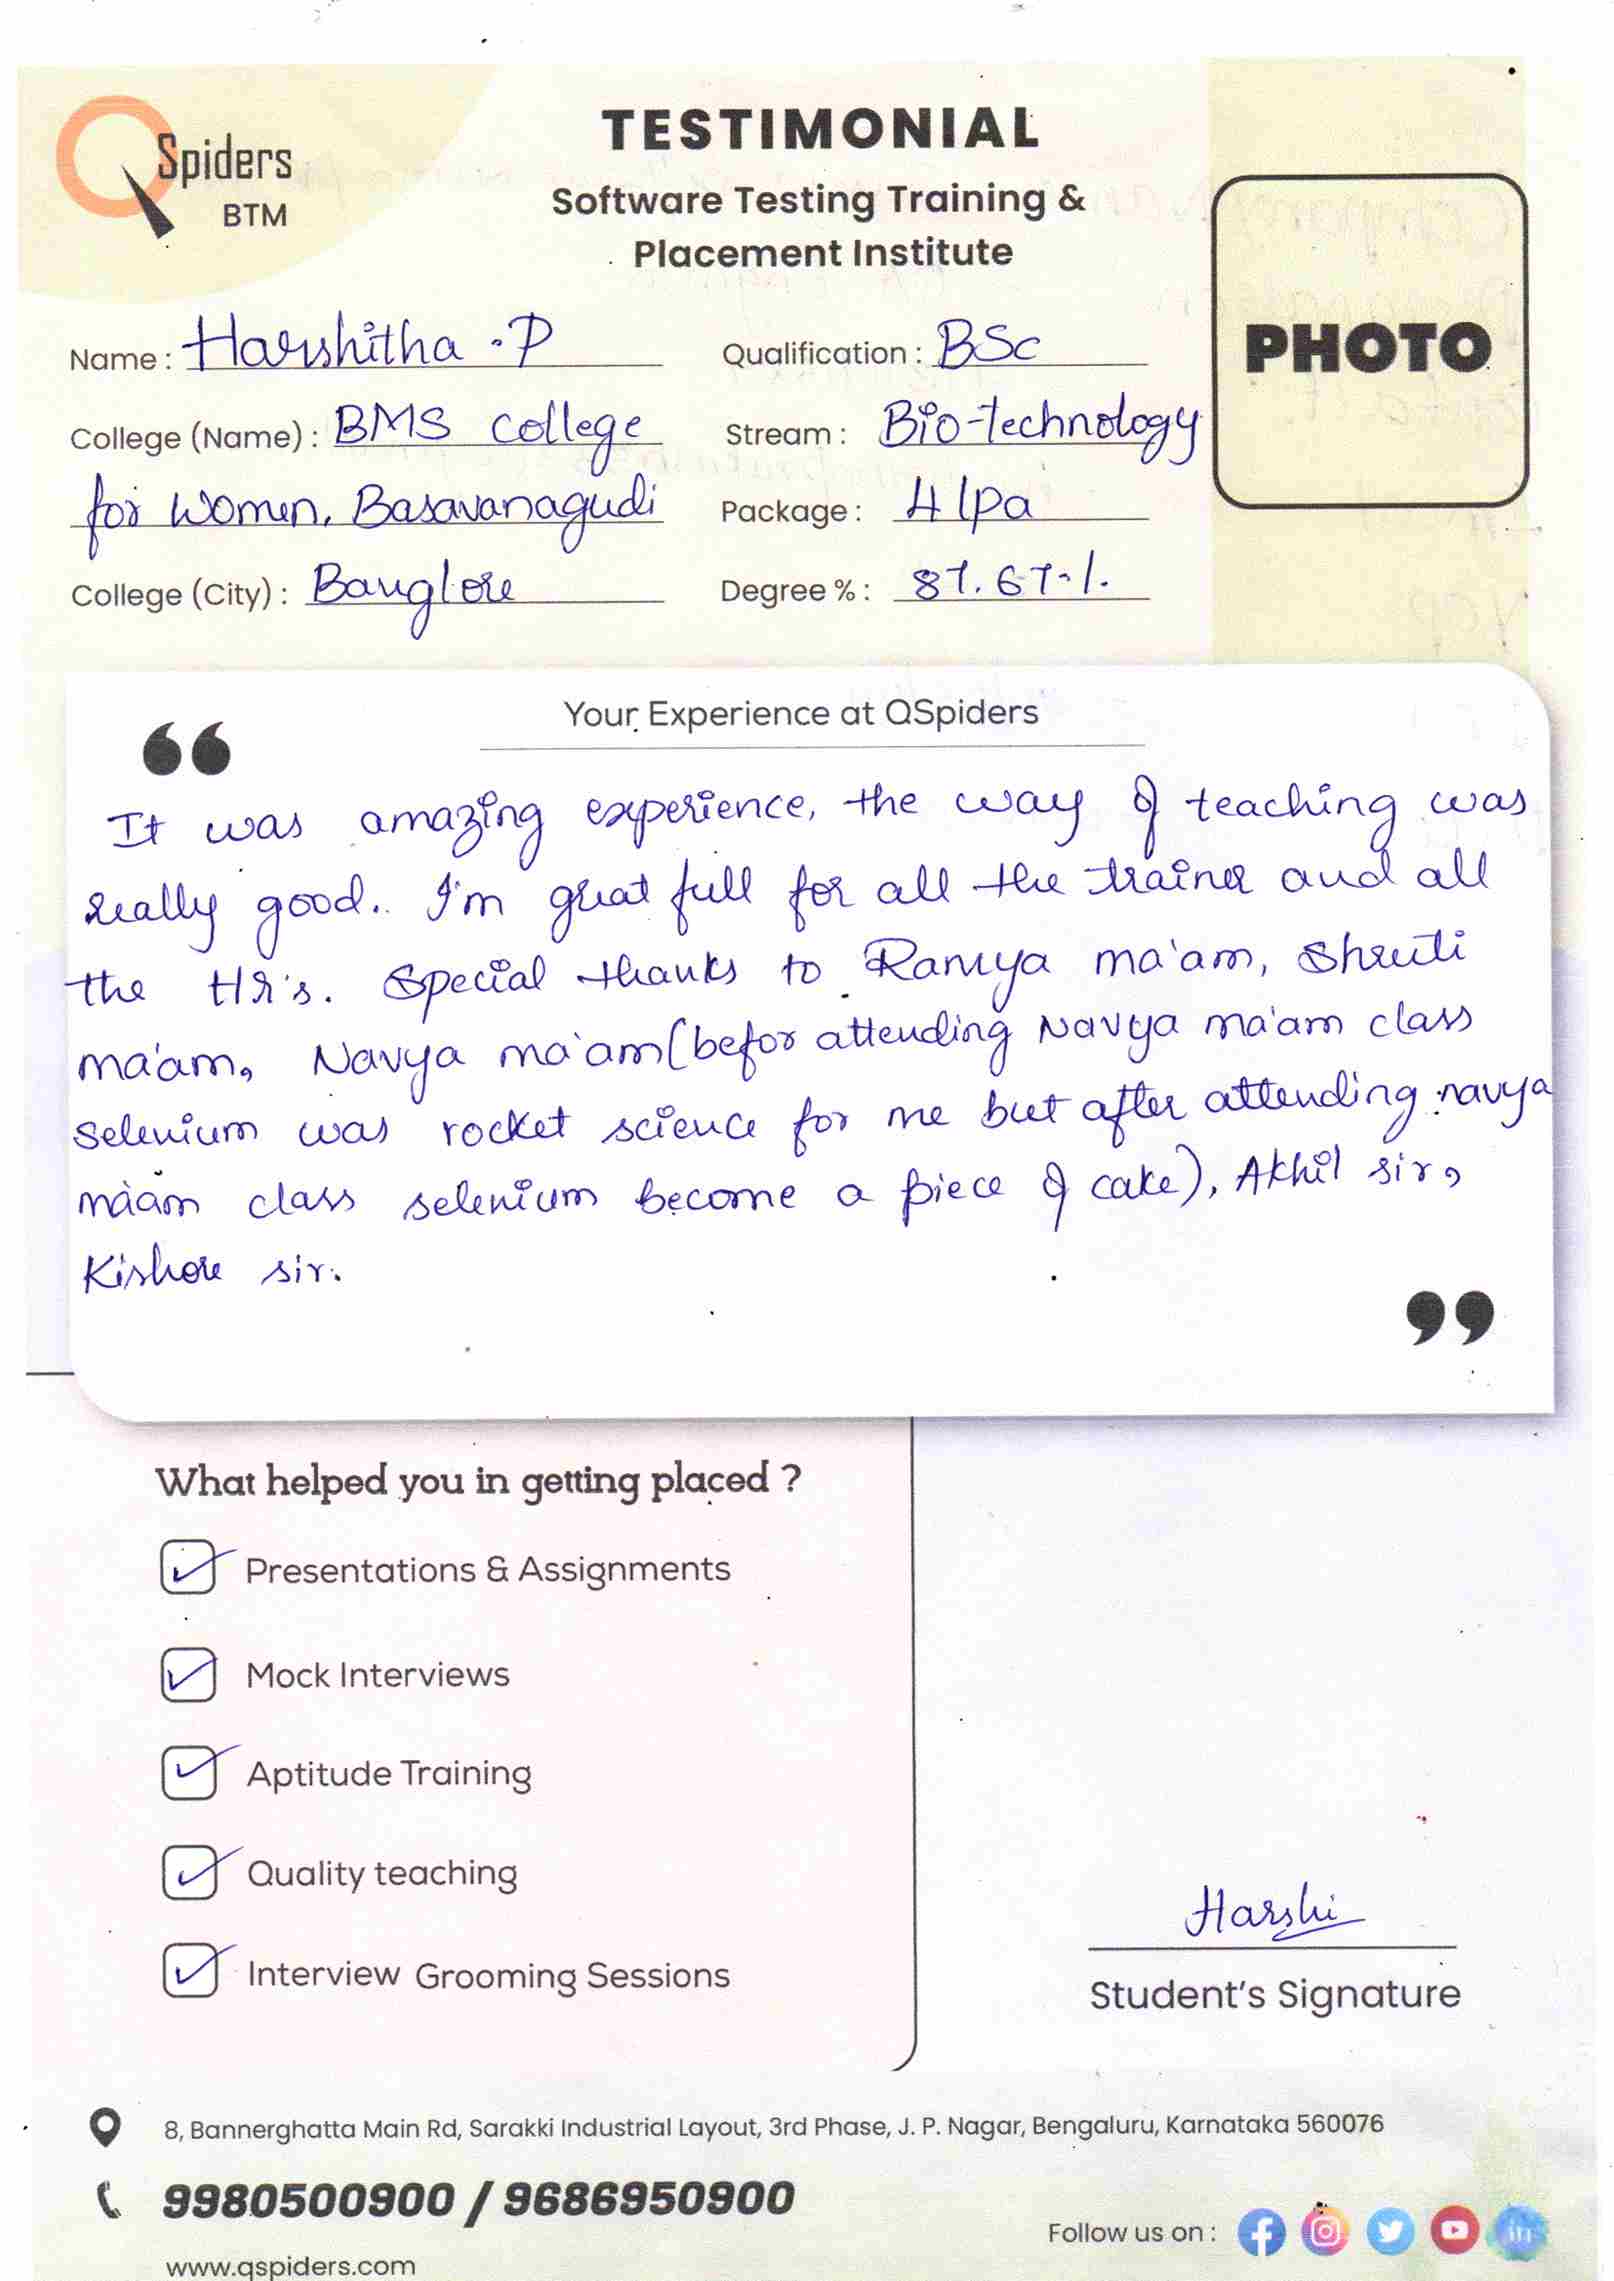 QSpiders
BTM
TESTIMONIAL
Software Testing Training &
Placement Institute
PHOTO
Name : Harshitha .P
Qualification : BSc
College (Name) : BMS college
Stream : Bio-technology
for Women, Basavanagudi
Package : 4 lpa
College (City) : Banglore
Degree % : 87.67%
Your Experience at QSpiders
It was amazing experience, the way of teaching was
really good. I'm great full for all the trainer and all
the Hr's. Special thanks to Ramya ma'am, Shruti
ma'am, Navya ma'am (befor attending Navya ma'am class
selenium was rocket science for me but after attending navya
ma'am class selenium become a piece of cake), Akhil sir,
Kishore sir.
What helped you in getting placed ?
Presentations & Assignments
Mock Interviews
Aptitude Training
Quality teaching
Interview Grooming Sessions
Harshi
Student's Signature
8, Bannerghatta Main Rd, Sarakki Industrial Layout, 3rd Phase, J. P. Nagar, Bengaluru, Karnataka 560076
9980500900 / 9686950900
Follow us on :
www.qspiders.com